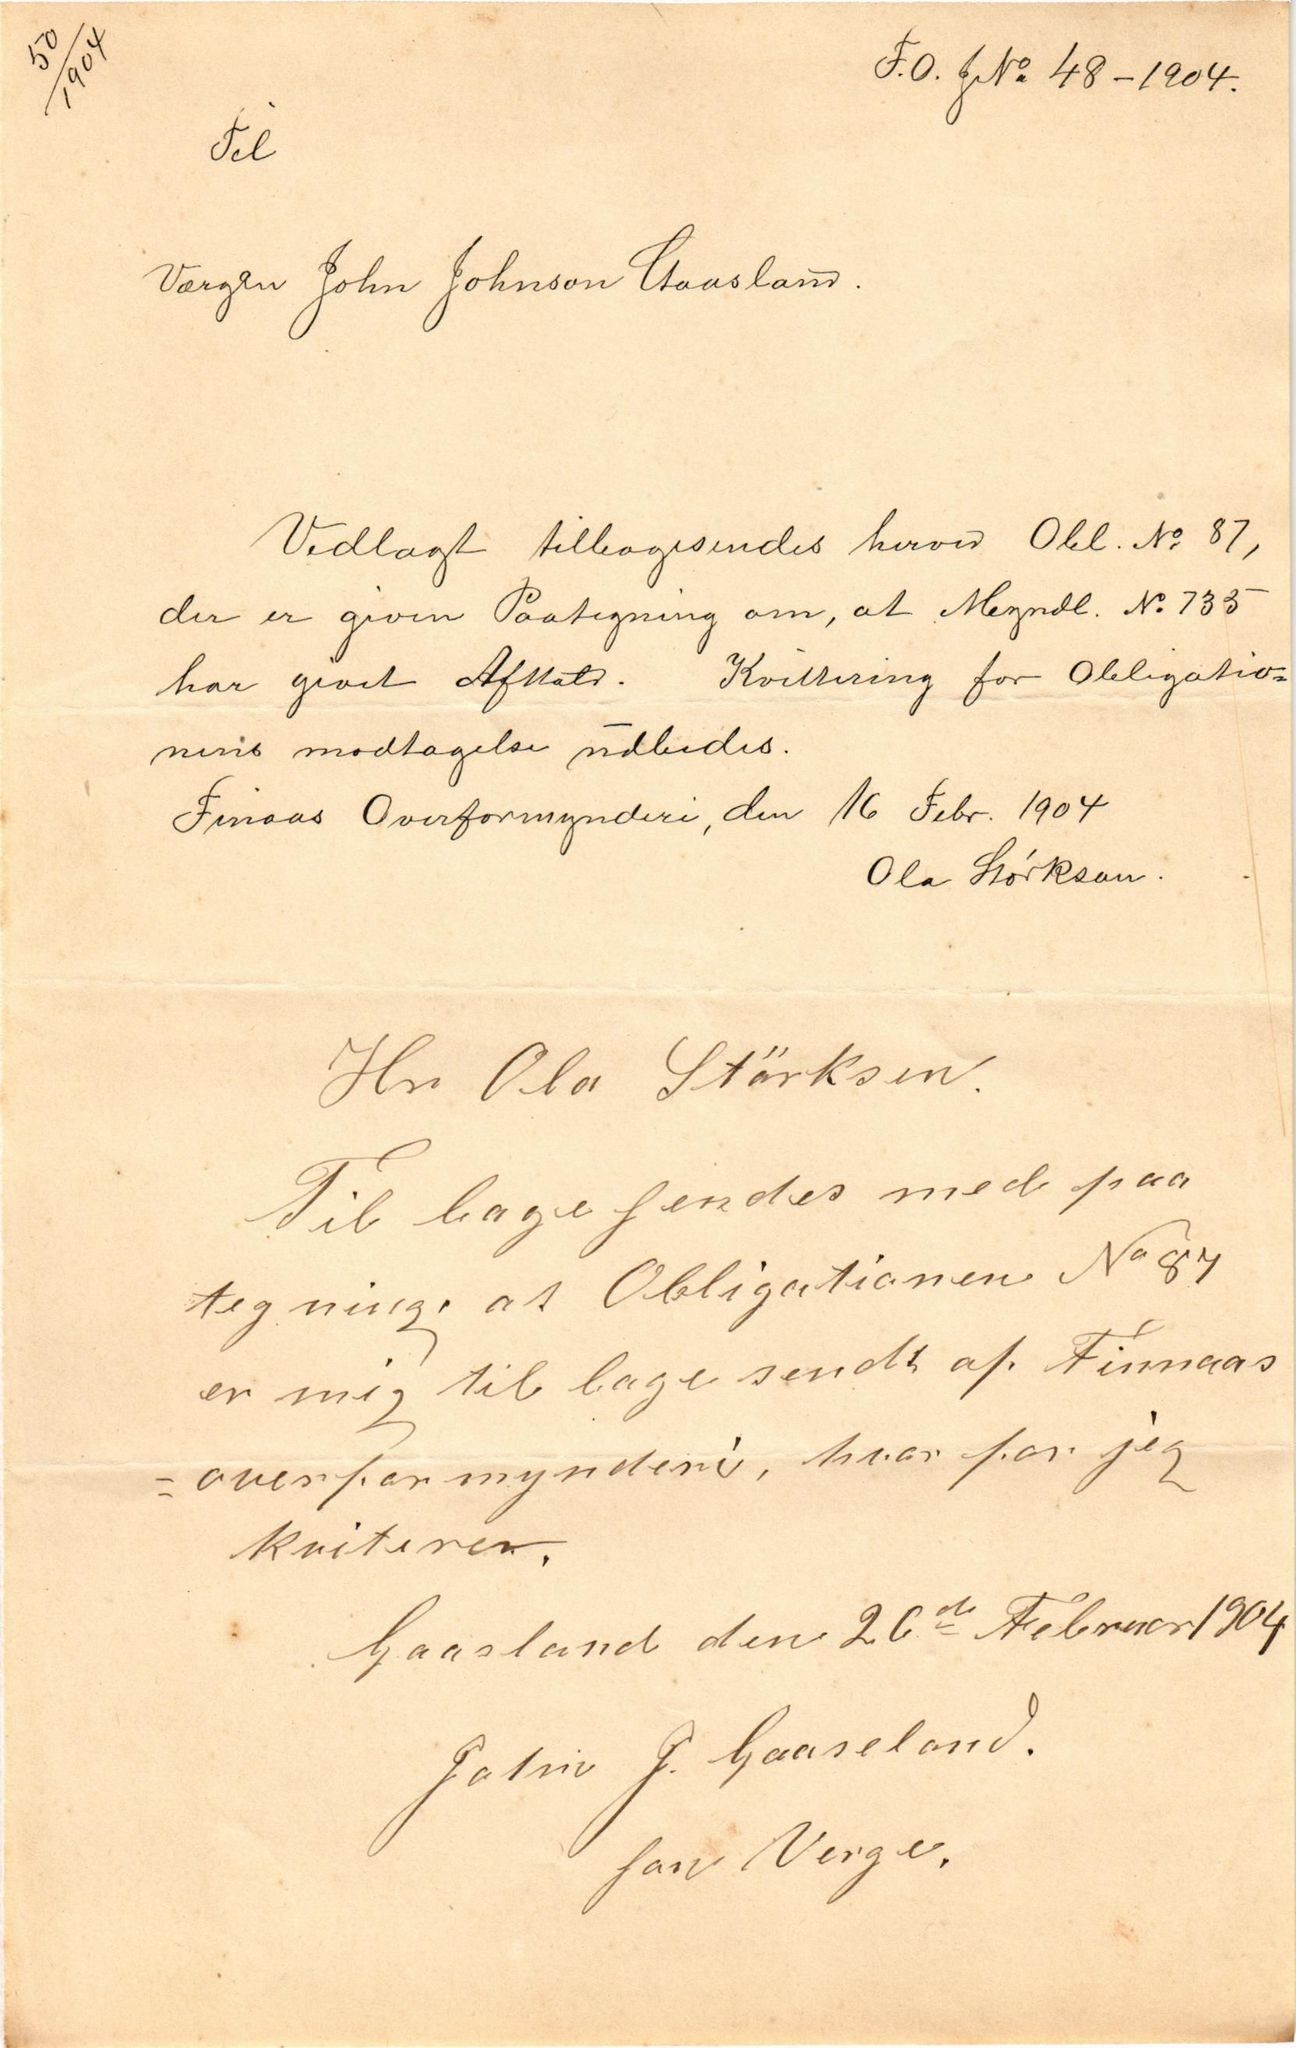 50/1904
F.O. JNo 48-1904.
Til
Værgen John Johnson Gaasland.
Vedlagt tilbagesendes herved Obl. No 87,
der er given Paategning om, at Myndl. No 735
har givet Afkald. Kvittering for Obligatio=
nens modtagelse udbedes.
Finaas Overformynderi, den 16 Febr. 1904
Ola Størksen.
Hr Ola Störksen.
Til bage sendes med paa
tegning. at Obligationen No 87
er mig til bage sendt af Finnaas
=overformynderi, hvor for jeg
kviterer.
Gaasland den 26de Februar 1904
John J. Gaaseland.
som Verge.